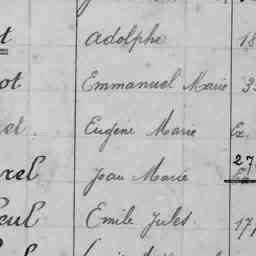 t Adolphe 18
ot Emmanuel Marie 3
et Eugène Marie Ex.
rel Jean Marie 27
eul Emile Jules 17